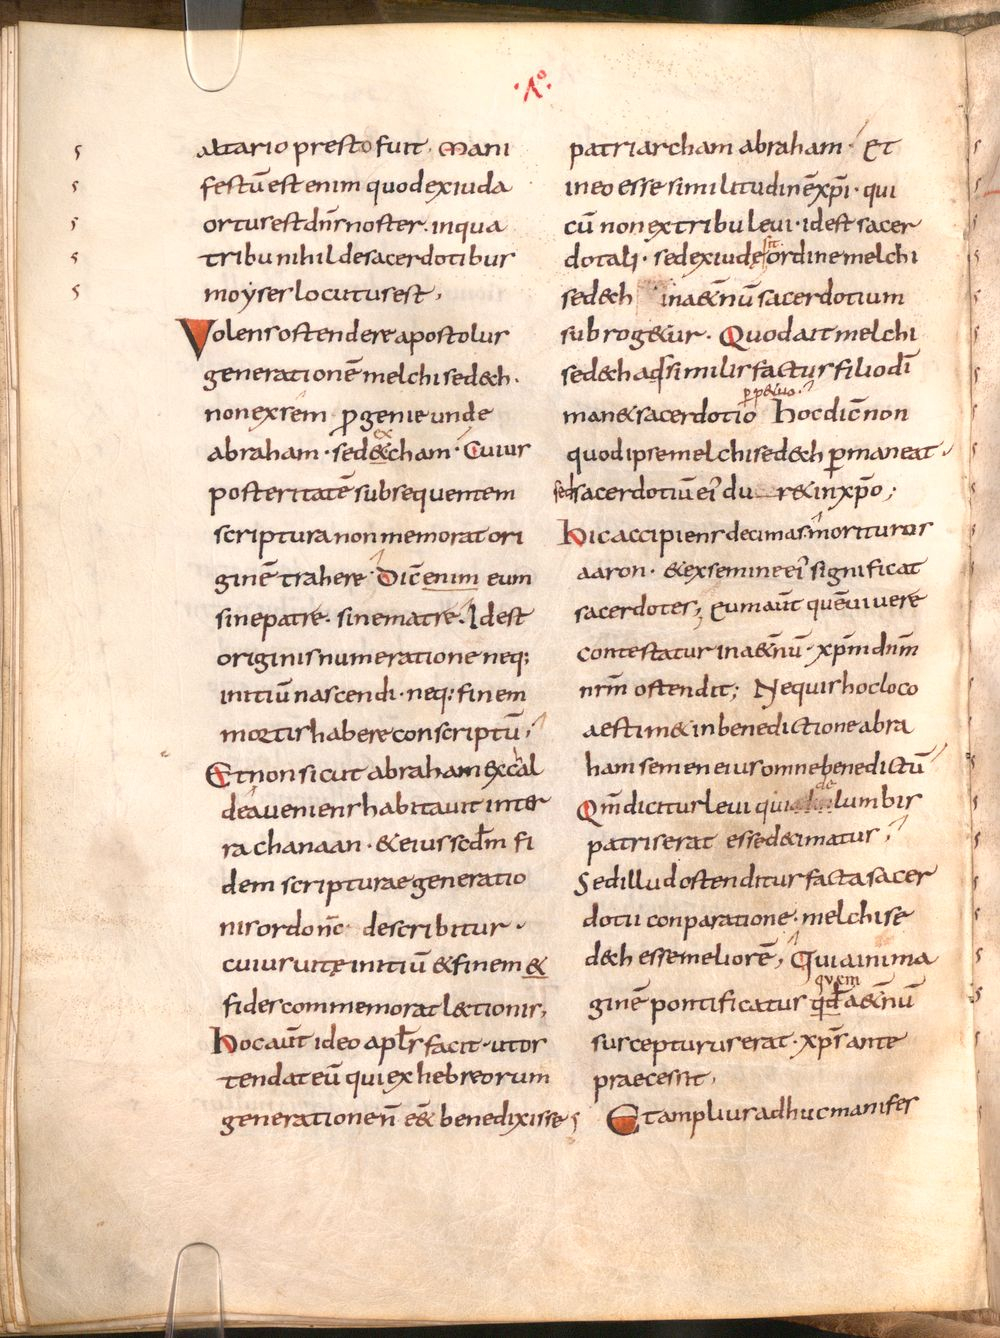 ·Λ°·
altario presto fuit. Mani
festū est enim quod ex iuda
ortus est dn̄s noster. in qua
tribu nihil de sacerdotibus
moyses locutus est.
Volens ostendere apostolus
generationē melchisedech.
non ex sem progenie unde
abraham. sed & cham. Cuius
ex
posteritatē subsequentem
scriptura non memorat ori
ginē trahere. Dic̄ enim eum
sine patre. sine matre. Idest
originis numeratione neq;
initiū nascendi. neq; finem
mortis habere conscriptū.
Et non sicut abraham ex cal
dea veniens habitavit in ter
ra chanaan. & eius scdm̄ fi
dem scripturae generatio
nis ordo n̄c describitur.
cuius vitę initiū & finem &
fides commemorat l&tionis,
hoc aūt ideo apl̄s facit. ut os
tendat eū qui ex hebreorum
generatione n̄ e& benedixisse
patriarcham abraham. Et
in eo esse similitudinē xp̄i. qui
cū non ex tribu levi. idest sacer
dotali. sed ex iudę sit ordine melchi
sed&h in a&nū sacerdotium
subrog&ur. Quod ait melchi
sed&h adsimilis factus filio dī
man& sacerdotio perp&uo. Hoc dic̄ non
quod ipse melchised&h permaneat.
sed sacerdotiū ei' du r& in xp̄o;
hic accipiens decimas. morituros
aaron. & ex semine ei' significat
sacerdotes; Eum aūt quē vivere
contestatur in a&nū. xp̄m dn̄m
nr̄m ostendit; Ne quis hoc loco
aestim& in benedictione abra
ham semen eius omne benedictū
Qm̄ dicitur levi qui de lumbis
patris erat esse decimatus;
Sed illud ostenditur facta sacer
dotii conparatione. melchise
d&h esse meliorē; Quia in ima
ginē pontificatus qd̄ a&nū
quem
suscepturus erat. xp̄s ante
praecessit.
Et amplius adhuc manifes